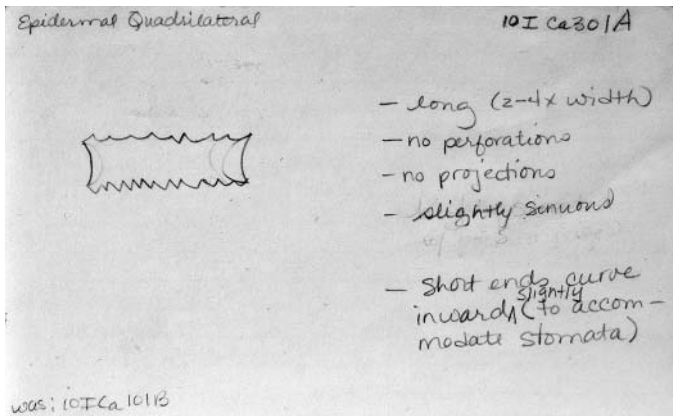 Epidermal Quadrilateral
10I Ca301A
- long (2-4x width)
- no perforations
- no projections
- slightly sinuous
- short ends curve
slightly
inwards (to accom-
modate stomata)
was: 10ICa101B